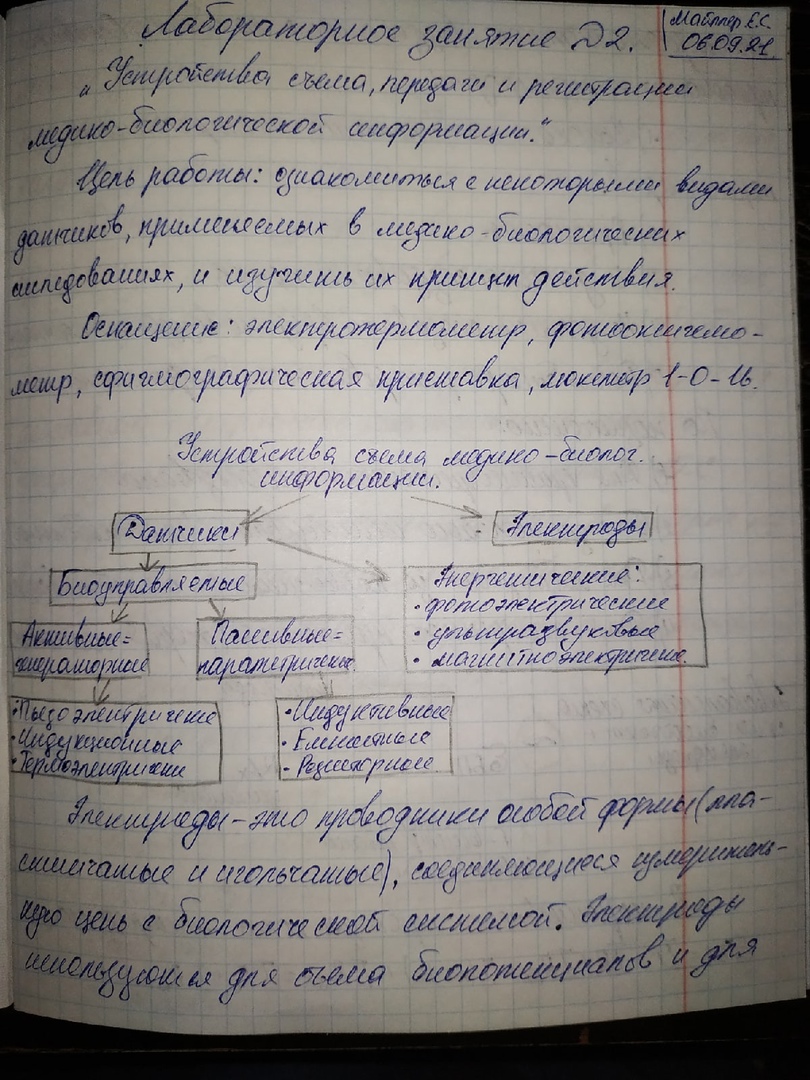 Лабораторное занятие №2.
Майллер Е.С.
06.09.21.
„Устройства съема, передачи и регистрации
медико-биологической информации."
Цель работы: ознакомиться с некоторыми видами
датчиков, применяемых в медико-биологических
исследованиях, и изучить их принцип действия.
Оснащение: электротермометр, фотооксигемо-
метр, сфигмографическая приставка, люксметр
Устройства съема медико-биолог.
информации.
Датчики
Электроды
Биоуправляемые
Энергетические:
• фотоэлектрические
• ультразвуковые
• магнитноэлектрические.
Активные=
генераторные
Пассивные=
параметрические.
• Пьезоэлектрические
• Индукционные
• Термоэлектрические
• Индуктивные
• Емкостные
• Резисторные.
Электроды-это проводники особой формы(пла-
стинчатые и игольчатые), соединяющиеся измеритель-
ную цепь с биологической системой. Электроды
используются для съема биопотенциалов и для